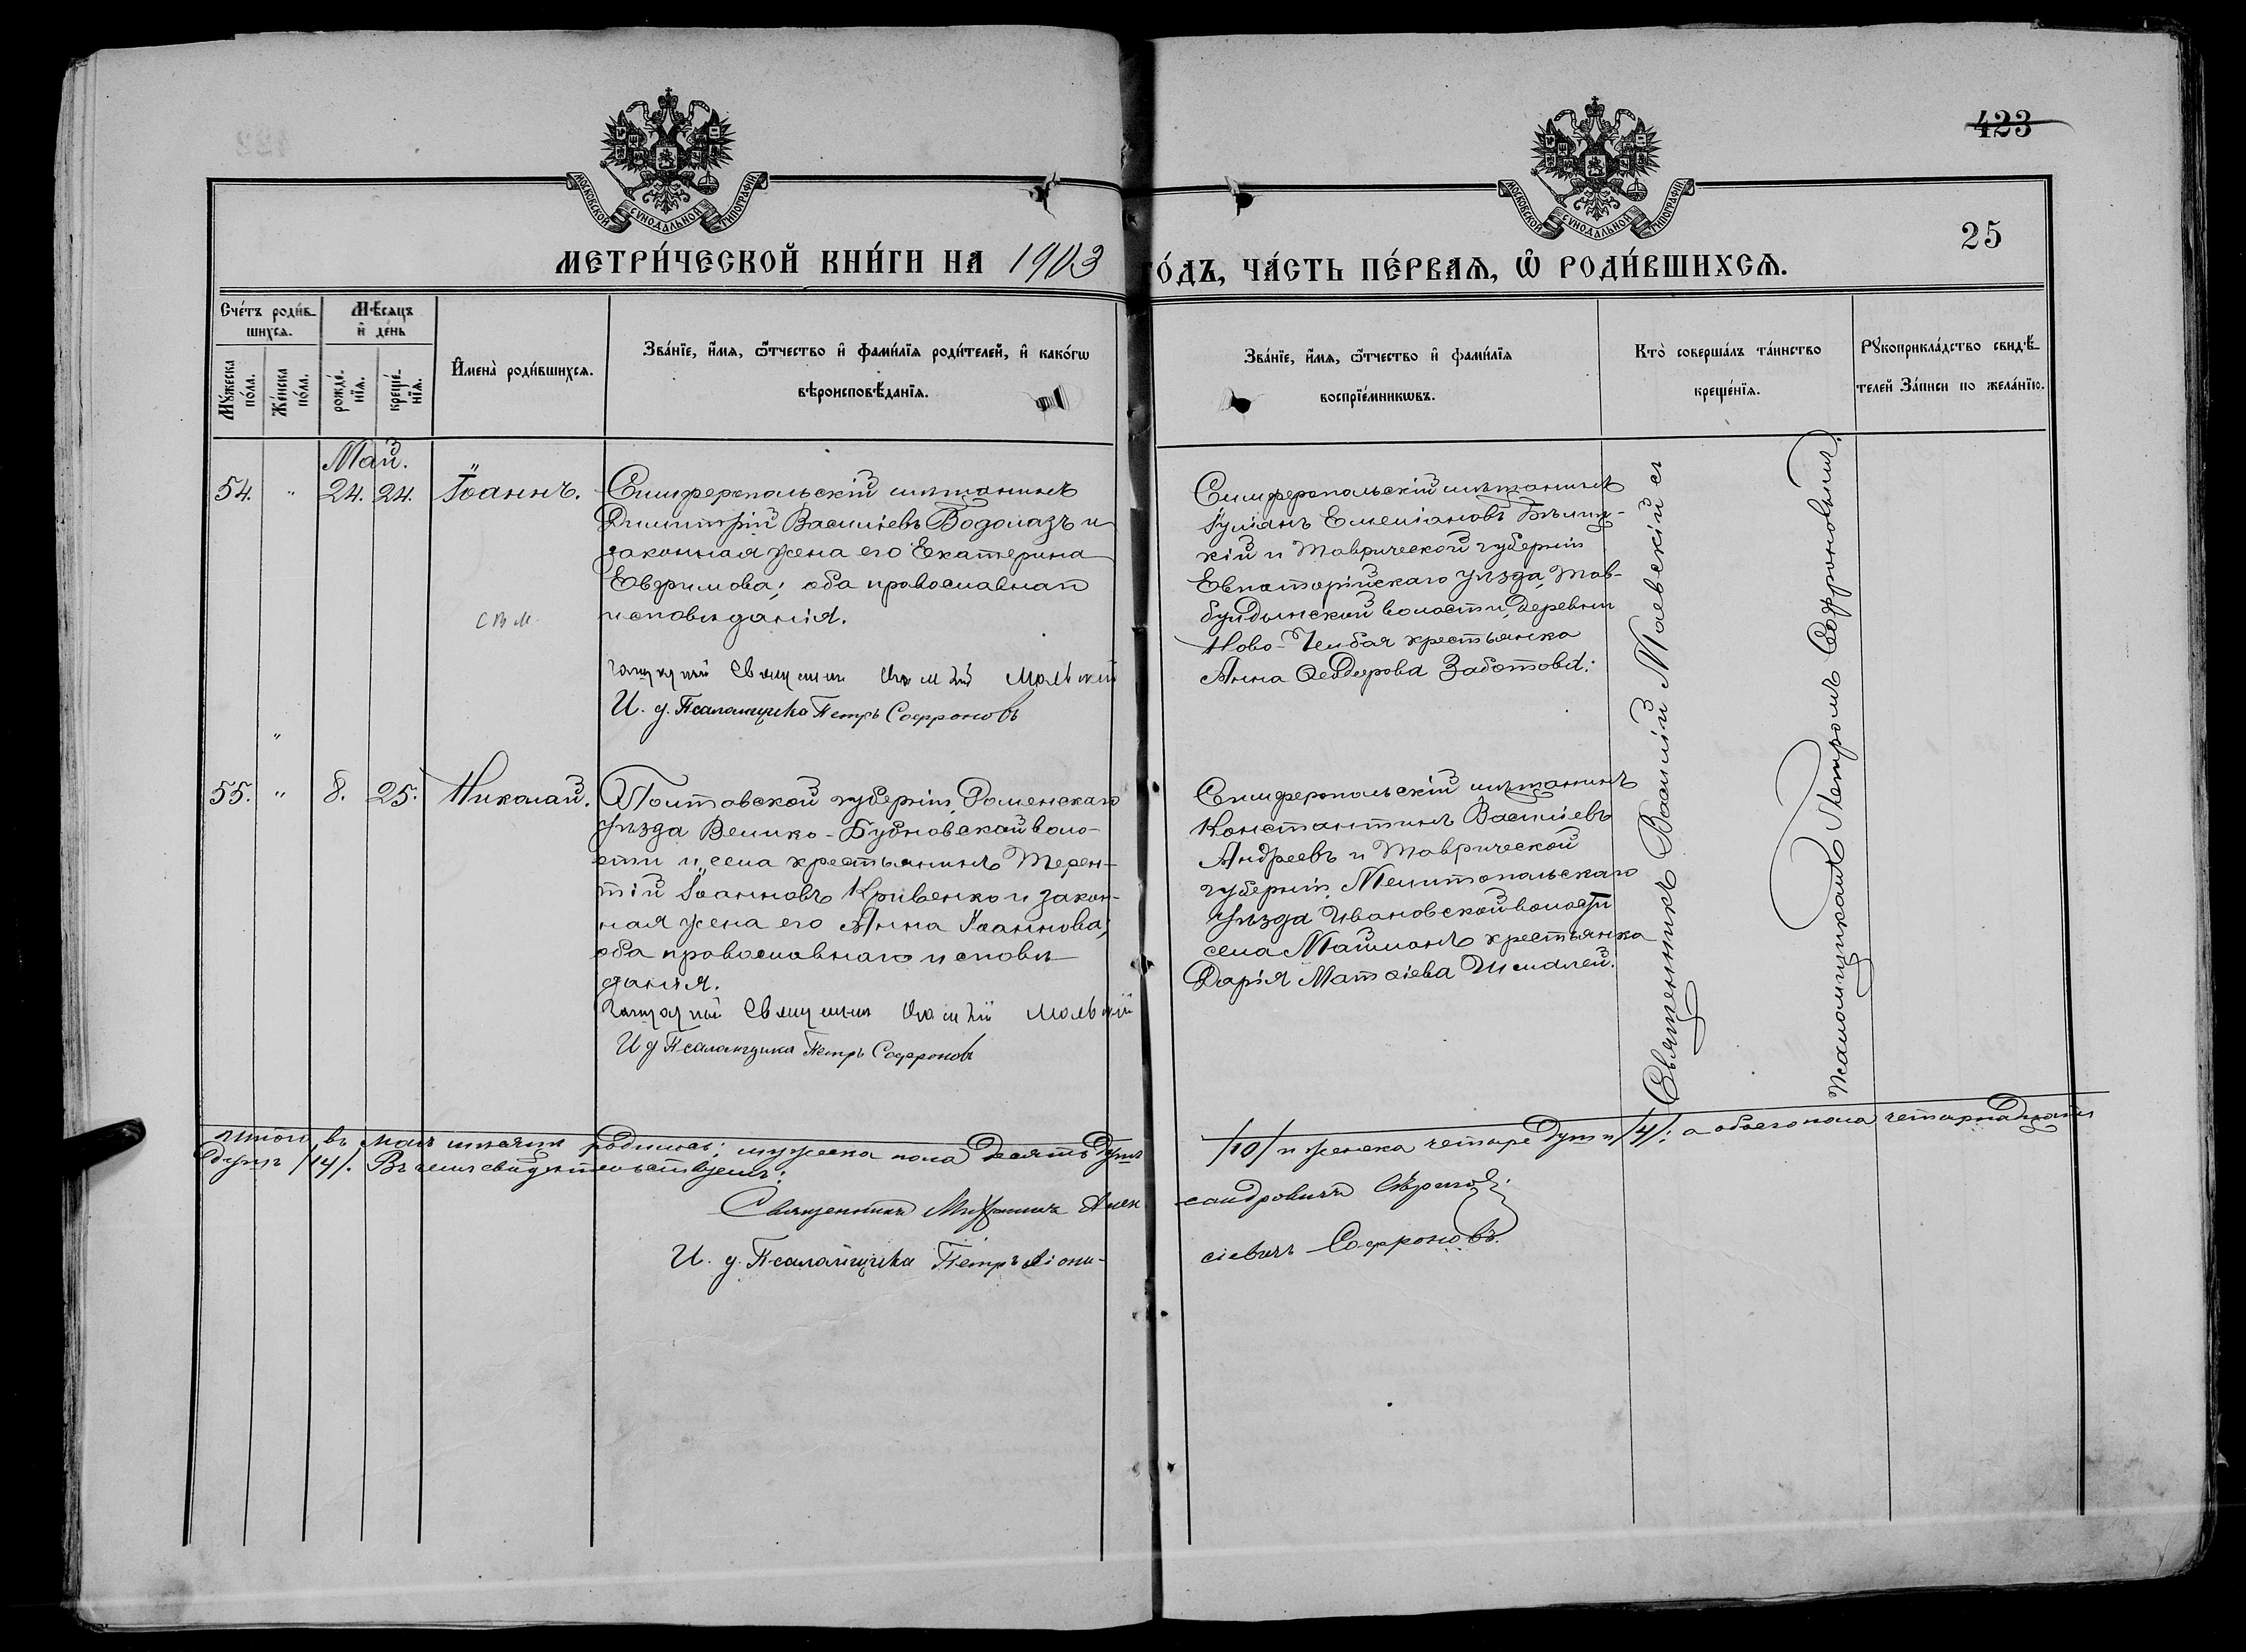 423
25
МОСКОВСКОЙ СУНОДАЛЬНОЙ ТИПОГРАФІИ
МОСКОВСКОЙ СУНОДАЛЬНОЙ ТИПОГРАФІИ
МЕТРИ́ЧЕСКОЙ КНИ́ГИ НА 1903
ГО́ДЪ, ЧА́СТЬ ПЕ́РВАѦ, Ѽ РОДИ́ВШИХСѦ.
Сче́тъ роди́в-
шихсѧ.
Мѣ́сѧцъ
и҆ де́нь
Мꙋ́жеска
по́ла.
Же́нска
по́ла.
рожде́-
нїѧ.
креще́-
нїѧ.
И҆мена̀ роди́вшихсѧ.
Зва́нїе, и҆́мѧ, ѻ҆́тчество и҆ фами́лїѧ роди́телей, и҆ како́гѡ
вѣроисповѣ́данїѧ.
Зва́нїе, и҆́мѧ, ѻ҆́тчество и҆ фами́лїѧ
воспрїе́мникѡвъ.
Кто̀ соверша́лъ та́инство
креще́нїѧ.
Рꙋкоприкла́дство свидѣ́-
телей за́писи по жела́нїю.
Май.
54. " 24. 24. Іоаннъ.
Симферопольскій мѣщанинъ
Димитрій Васильевъ Водолазъ и
законная жена его Екатерина
Евфимова; оба православнаго
исповѣданія.
с в м
Священникъ Василій Маевскій
И. д. Псаломщика Петръ Софроновъ
Симферопольскій мѣщанинъ
Іуліанъ Емеліановъ Бѣлиц-
кій и Таврической губерніи
Евпаторійскаго уѣзда, Тав-
булдынской волости, деревни
Ново-Челбая крестьянка
Анна Ѳеодорова Заботова.
"
55. " 8. 25. Николай.
Полтавской губерніи, Роменскаго
уѣзда Велико-Бубновской воло-
сти и села крестьянинъ Терен-
тій Іоанновъ Кривенко и закон-
ная жена его Анна Іоаннова;
оба православнаго исповѣ-
данія.
Священникъ Василій Маевскій
И д Псаломщика Петръ Софроновъ
Симферопольскій мѣщанинъ
Константинъ Васильевъ
Андреевъ и Таврической
губерніи, Мелитопольскаго
уѣзда Ивановской волости
села крестьянка
Дарія Матѳіева
Священникъ Василій Маевскій съ
Псаломщикомъ Петромъ Софроновымъ.
Итого въ маѣ мѣсяцѣ родилось: мужеска пола десять душъ
/10/ и женска четыре души /4/; а обоего пола четырнадцать
душъ /14/. Въ чемъ свидѣтельствуемъ:
Священникъ Михаилъ Алек
сандровичъ
И. д. Псаломщика Петръ Діони-
сіевичъ Софроновъ.